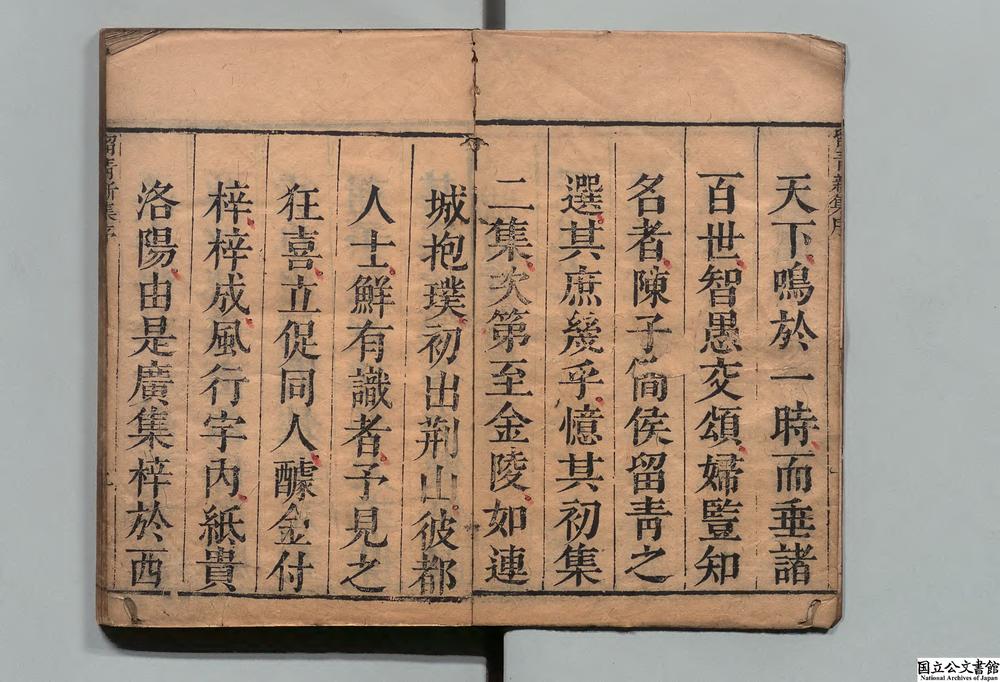 天下鳴於一時而垂諸
百世智愚交頌婦豎知
名者陳子簡侯留青之
選其庶幾乎憶其初集
二集次第至金陵如連
城抱璞初出荆山彼都
人士鮮有識者予見之
狂喜立促同人醵金付
梓梓成風行宇內紙貴
洛陽由是廣集梓於西
留青新集序
国立公文書館
National Archives of Japan